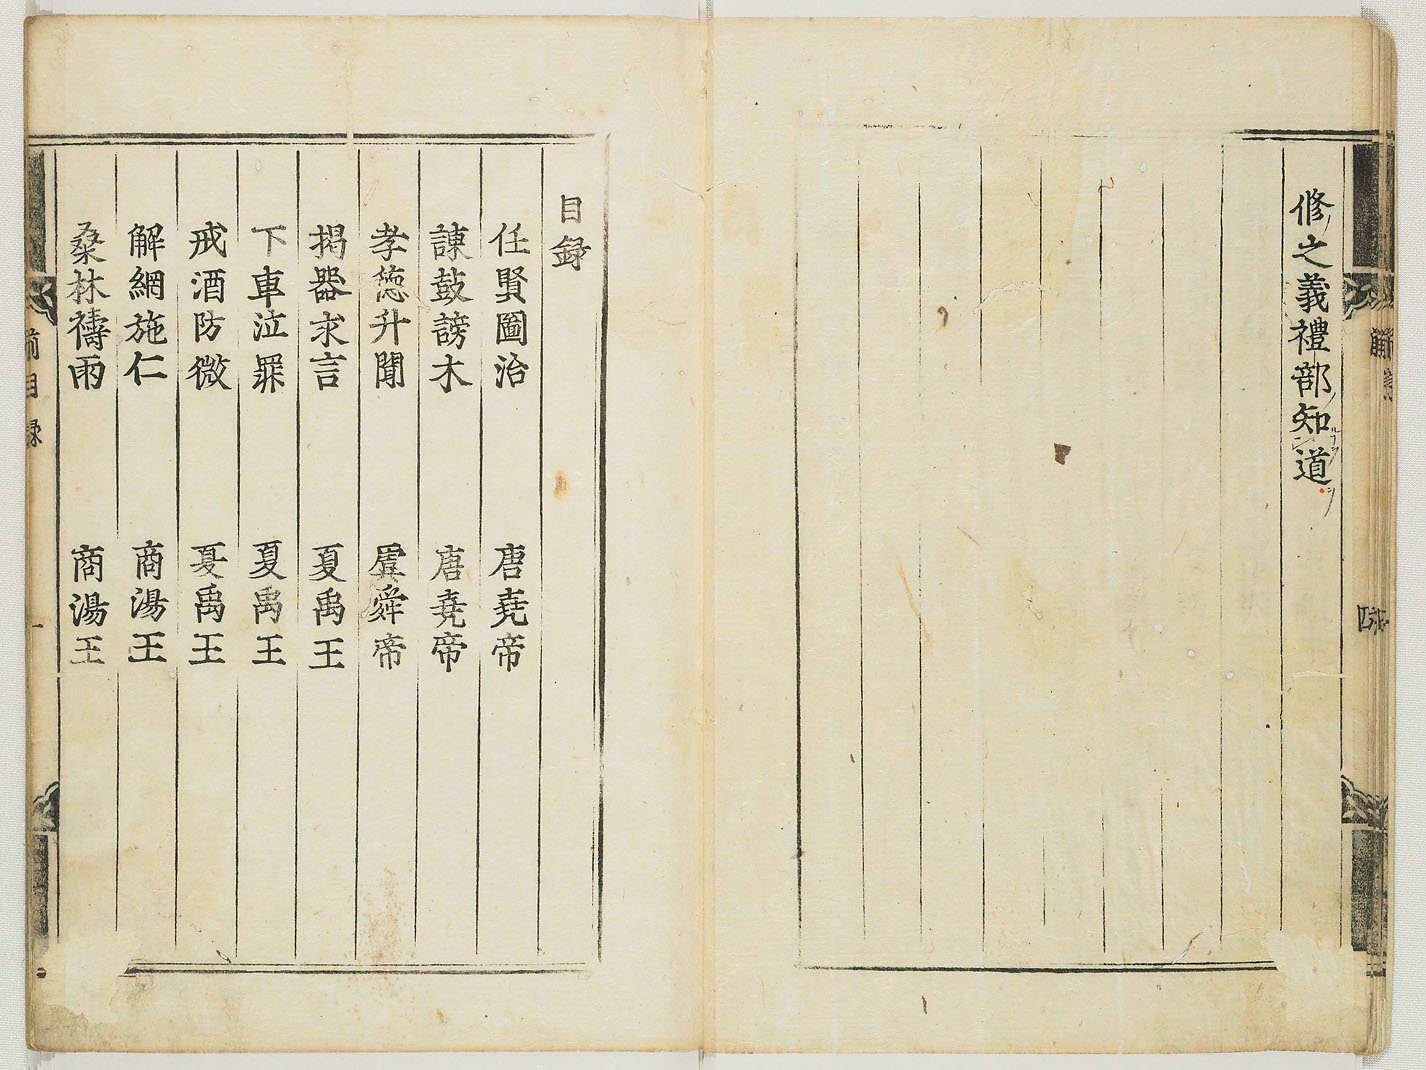 修之義禮部知道
目録
任賢圖治 唐堯帝
諫鼓謗木 唐堯帝
孝德升聞 虞舜帝
揭器求言 夏禹王
下車泣罪 夏禹王
戒酒防微 夏禹王
解網施仁 商湯王
桑林禱雨 商湯王
前目録
一